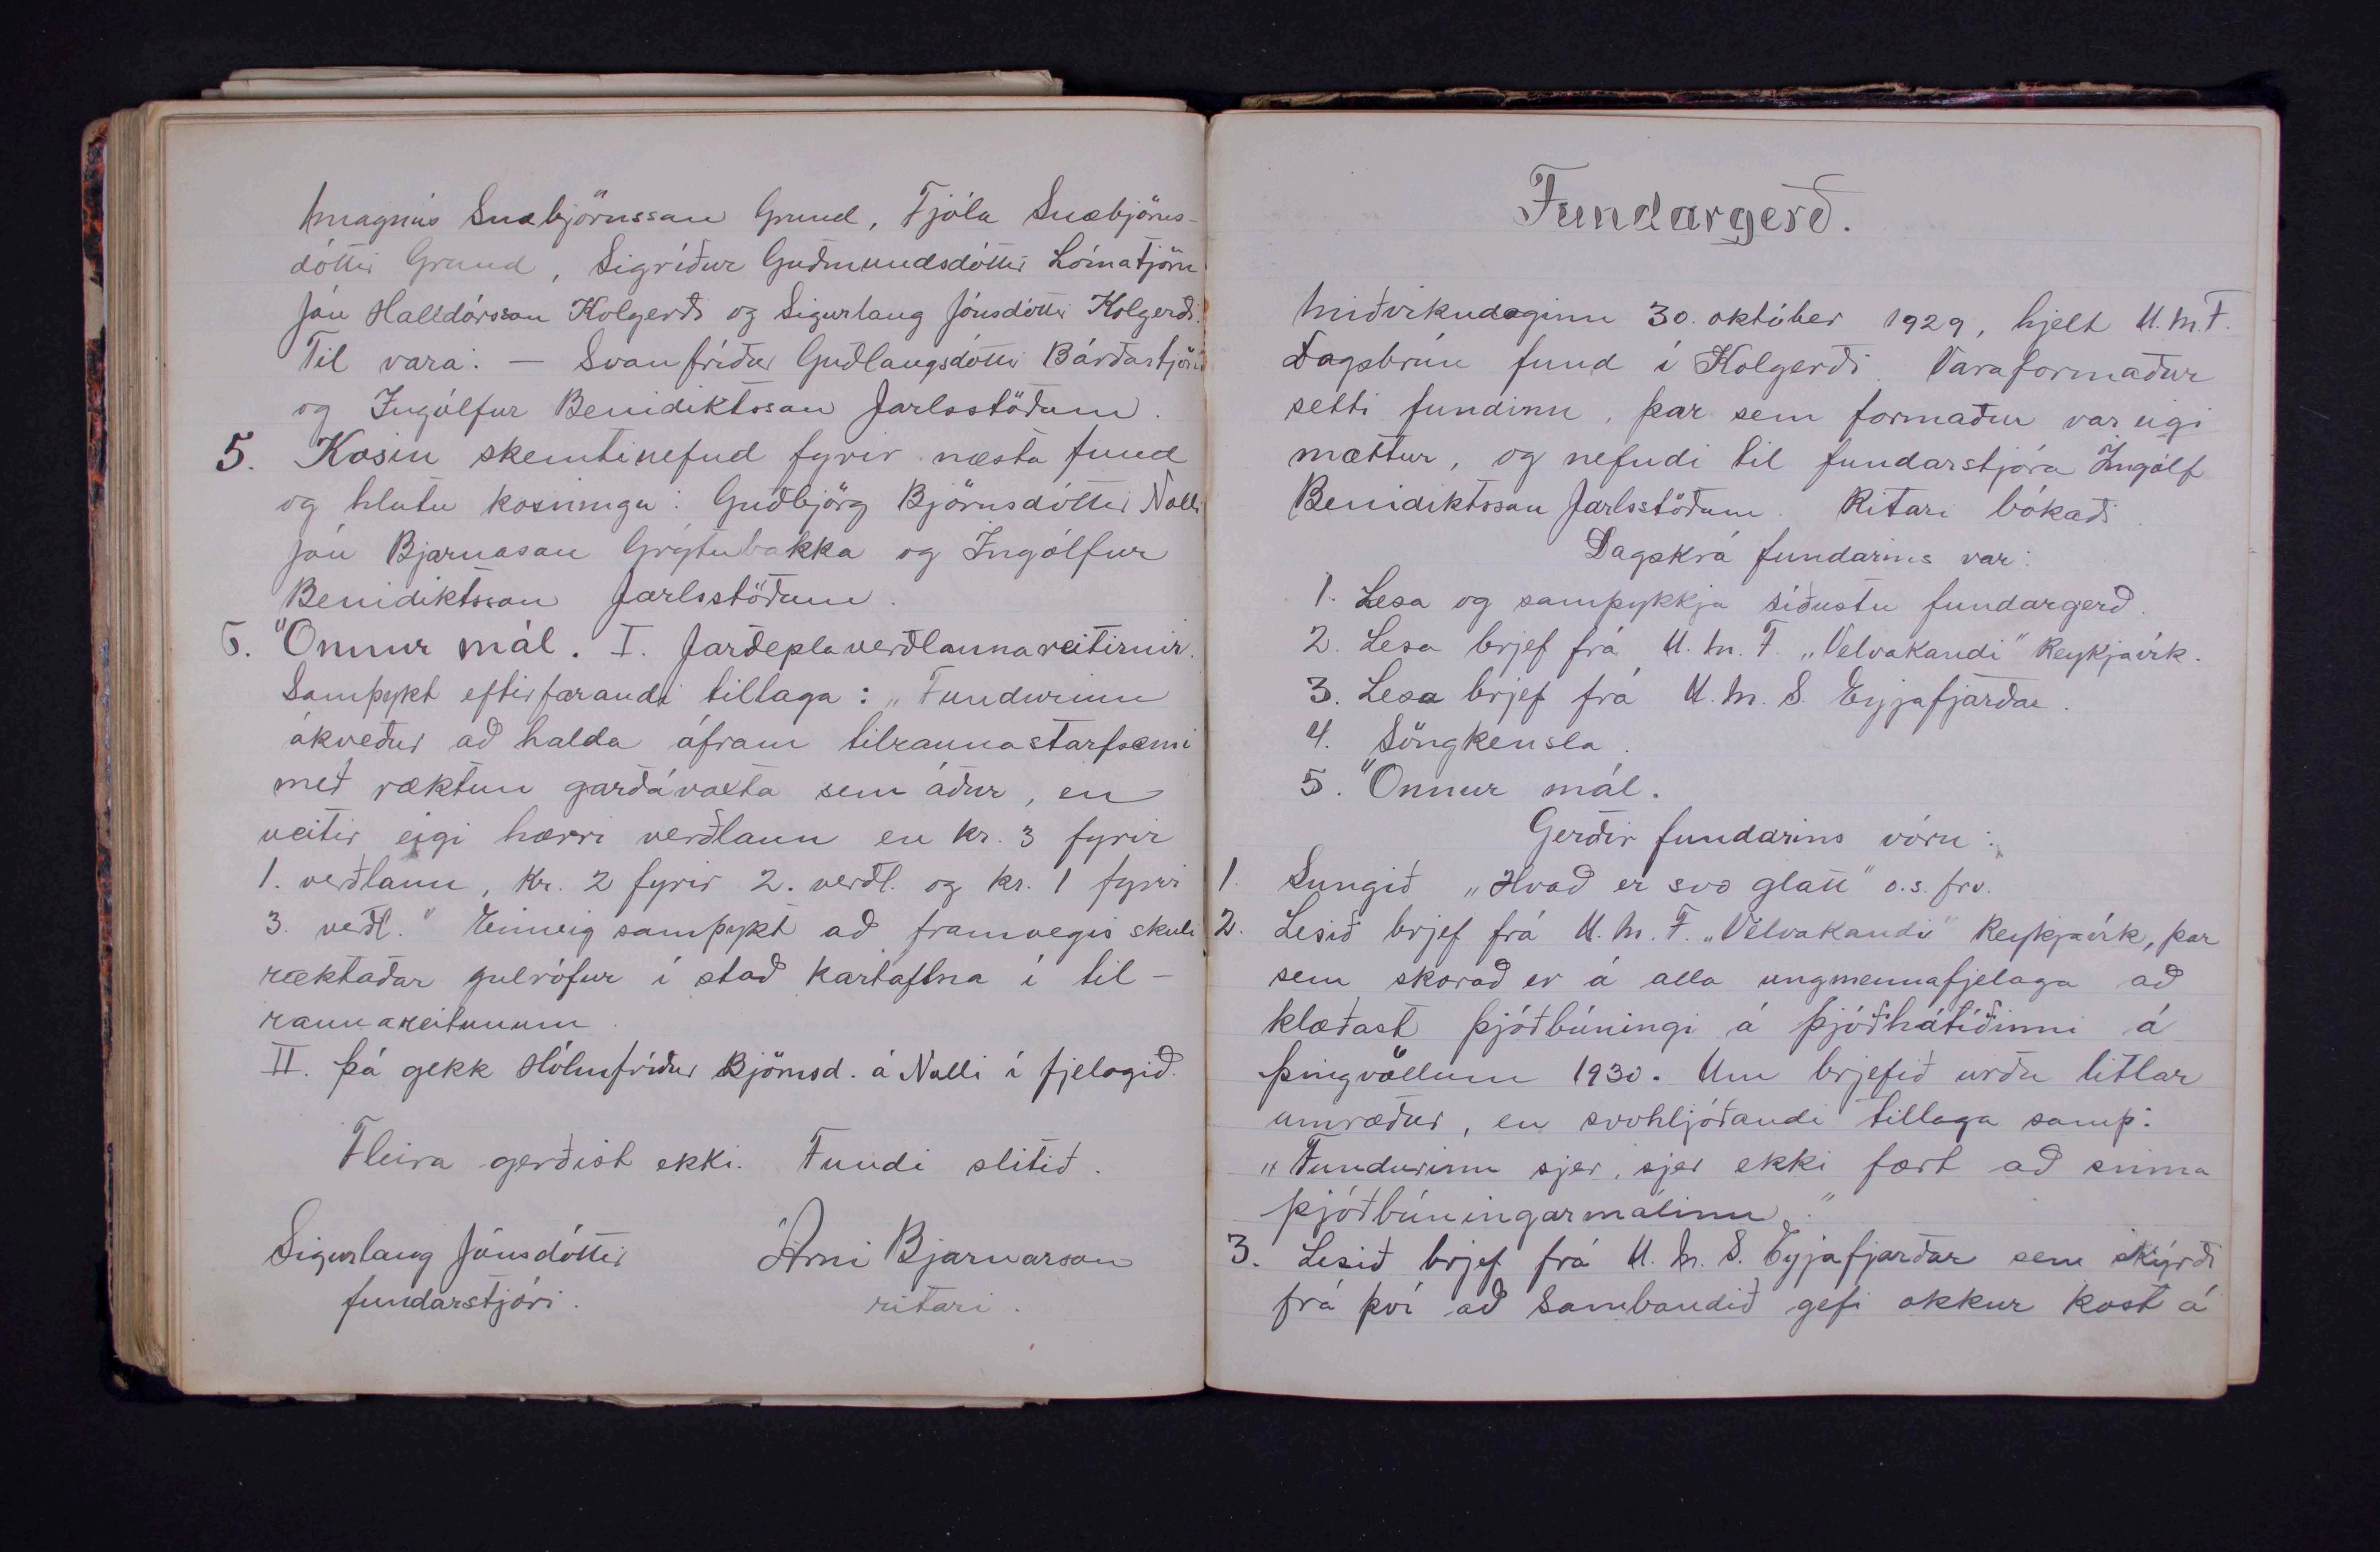 Magnús Snæbjörnsson Grund, Fjóla Snæbjörns-
dóttir Grund, Sigríður Guðmundsdóttir Lómatjörn
Jón Halldórsson Kolgerði og Sigurlaug Jónsdóttir Kolgerði.
Til vara: – Svanfríður Guðlaugsdóttir Bárðartjörn
og Ingólfur Benidiktsson Jarlsstöðum.
5. Kosin skemtinefnd fyrir næsta fund
og hlutu kosningu: Guðbjörg Björnsdóttir Nolli
Jón Bjarnason Grýtubakka og Ingólfur
Benidiktsson Jarlsstöðum.
6. Önnur mál. I. Jarðeplaverðlaunareitirnir.
Samþykt eftirfarandi tillaga: „Fundurinn
ákveður að halda áfram tilraunastarfsemi
með ræktun garðávaxta sem áður, en
veitir eigi hærri verðlaun en kr. 3 fyrir
1. verðlaun, kr. 2 fyrir 2. verðl. og kr. 1 fyrir
3. verðl." Einnig samþykt að framvegis skuli
ræktaðar gulrófur í stað kartaflna í til-
raunareitunum.
II. Þá gekk Hólmfríður Björnsd. á Nolli í fjelagið.
Fleira gerðist ekki. Fundi slitið.
Sigurlaug Jónsdóttir Árni Bjarnarson
fundarstjóri. ritari.
Fundargerð.
Miðvikudaginn 30. október 1929, hjelt U.M.F.
Dagsbrún fund í Kolgerði. Varaformaður
setti fundinn, þar sem formaður var eigi
mættur, og nefndi til fundarstjóra Ingólf
Benidiktsson Jarlsstöðum. Ritari bókaði.
Dagskrá fundarins var:
1. Lesa og samþykkja síðustu fundargerð.
2. Lesa brjef frá U.M.F. „Velvakandi" Reykjavík.
3. Lesa brjef frá U.M.S. Eyjafjarðar.
4. Söngkensla.
5. Önnur mál.
Gerðir fundarins vóru:
1. Sungið „Hvað er svo glatt" o.s.frv.
2. Lesið brjef frá U.M.F. „Velvakandi" Reykjavík, þar
sem skorað er á alla ungmennafjelaga að
klæðast þjóðbúningi á þjóðhátíðinni á
Þingvöllum 1930. Um brjefið urðu litlar
umræður, en svohljóðandi tillaga samþ:
„Fundurinn sjer, sjer ekki fært að sinna
þjóðbúningarmálinu."
3. Lesið brjef frá U.M.S. Eyjafjarðar sem skýrði
frá því að Sambandið gefi okkur kost á